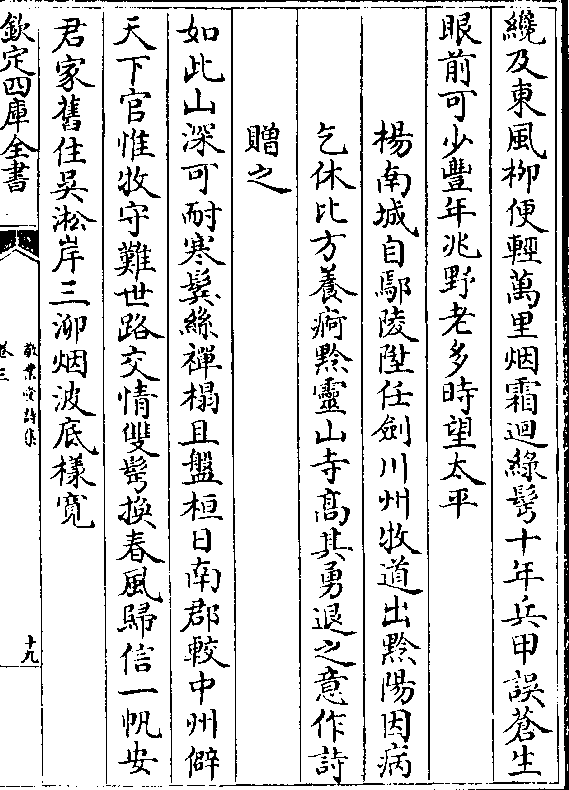 纔及東風栁便輕萬里烟霜迴綠鬂十年兵甲誤蒼生
眼前可少豐年兆野老多時望太平
楊南城自鄢陵陞任劍川州牧道出黔陽因病
乞休比方養疴黔靈山寺髙其勇退之意作詩
贈之
如此山深可耐寒鬂絲禪榻且盤桓日南郡較中州僻
天下官惟牧守難世路交情雙鬂換春風歸信一帆安
君家舊住吳淞岸三泖烟波底様寛
欽定四庫全書
敬業堂詩集
卷三
十九